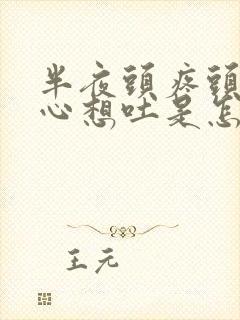 半夜頭疼頭
心想吐是怎
王元